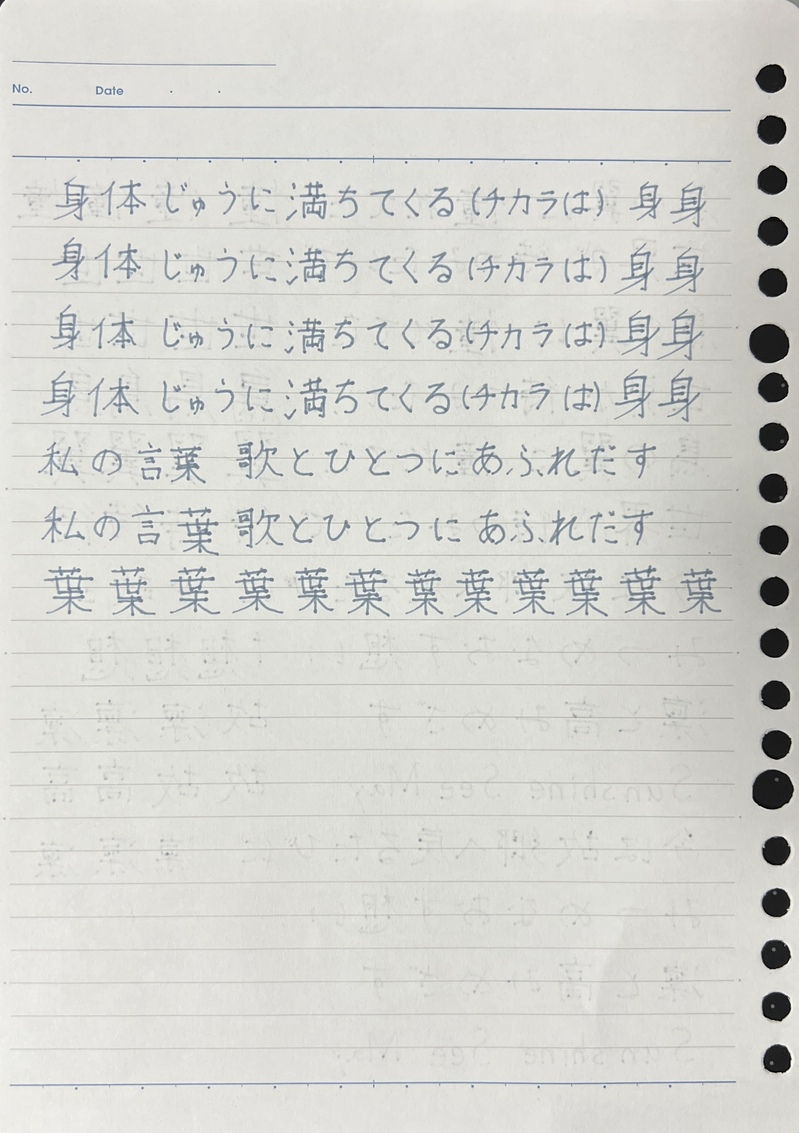 No. Date
身体じゅうに満ちてくる(チカラは) 身身
身体じゅうに満ちてくる(チカラは) 身身
身体じゅうに満ちてくる(チカラは) 身身
身体じゅうに満ちてくる(チカラは) 身身
私の言葉 歌とひとつにあふれだす
私の言葉 歌とひとつにあふれだす
葉葉葉葉葉葉葉葉葉葉葉葉